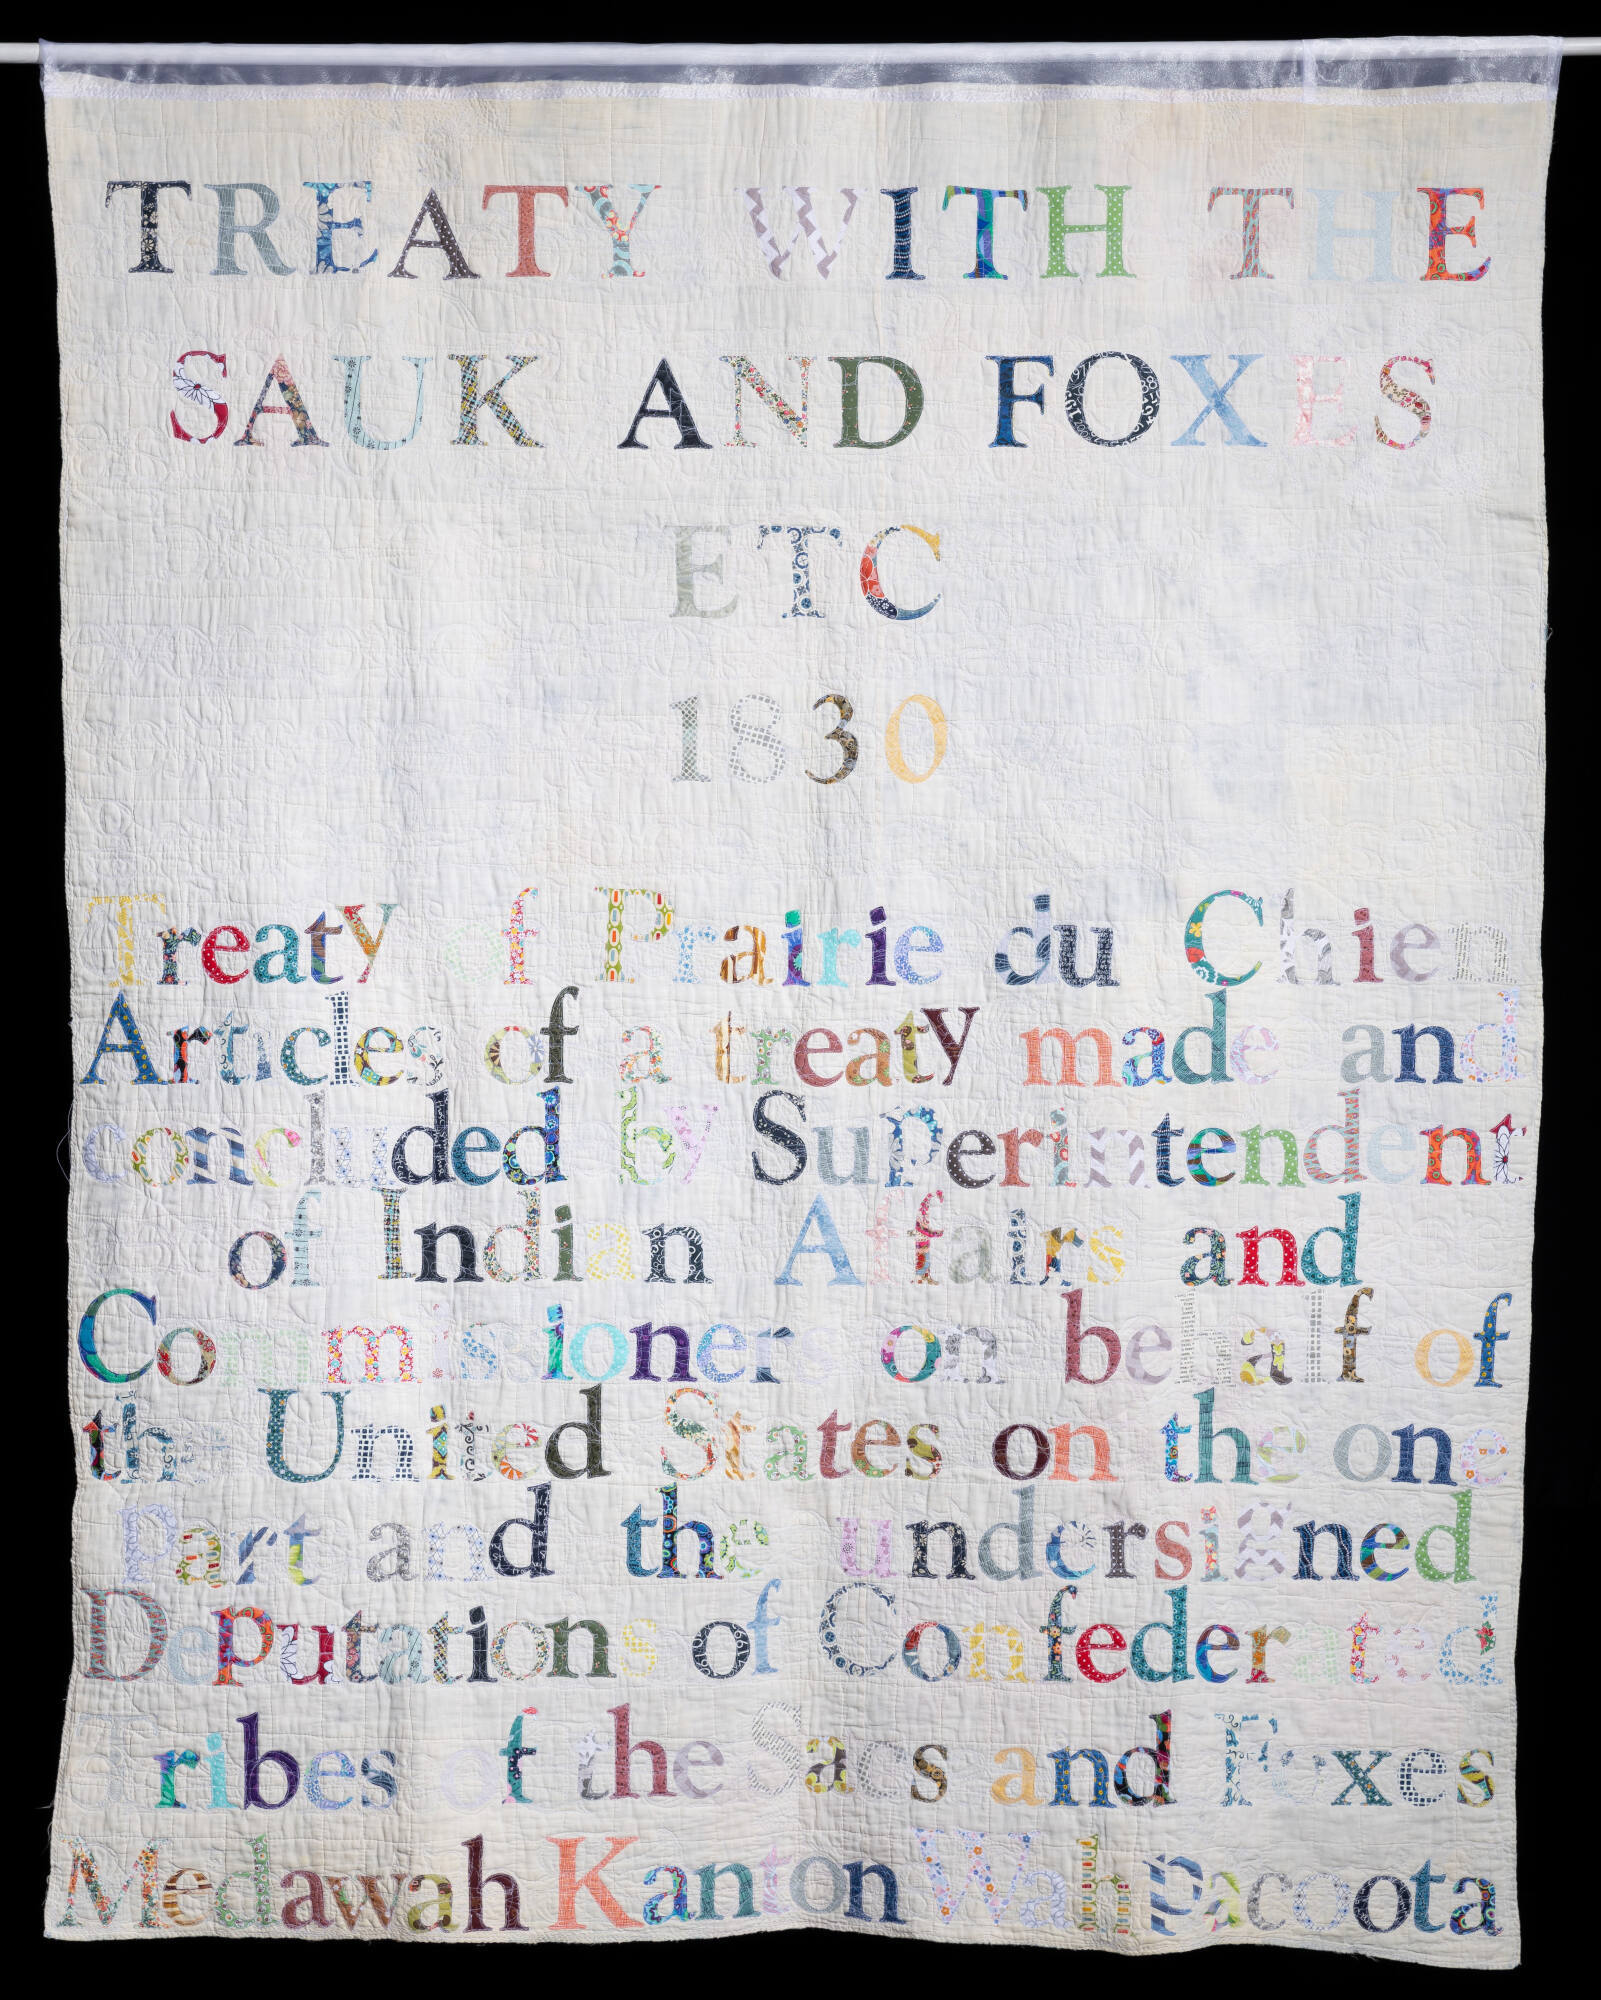 TREATY WITH THE
SAUK AND FOXES
ETC
1830
Treaty of Prairie du Chien
Articles of a treaty made and
concluded by Superintendent
of Indian Affairs and
Commissioner on behalf of
the United States on the one
Part and the undersigned
Deputations of Confederated
Tribes of the Sacs and Foxes
Medawah Kanton Wah Pacoota